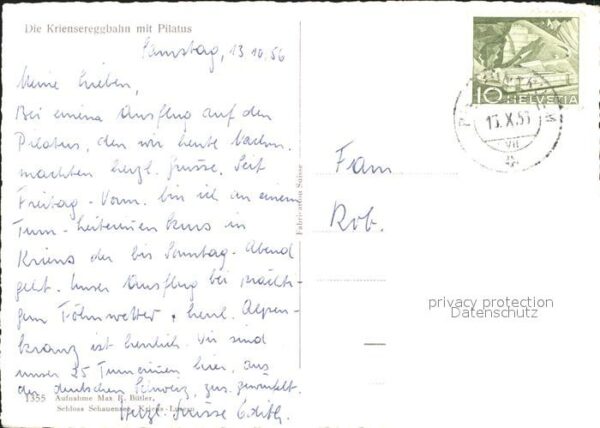 Die Kriensereggbahn mit Pilatus
Samstag, 13.10.56
Meine Lieben,
Bei einem Ausflug auf den
Pilatus, den wir heute Nachm.
machten herzl. Grüsse. Seit
Freitag-Vorm. bin ich an einem
Turn-Leiterinnenkurs in
Kriens der bis Sonntag-Abend
geht. Unser Ausflug bei prächti-
gem Föhnwetter + herrl. Alpen-
kranz ist herrlich. Wir sind
unser 25 Turnerinnen hier, aus
der deutschen Schweiz, zus. gewürfelt.
Herzl. Grüsse Edith.
1355 Aufnahme Max R. Bütler,
Schloss Schauensee, Kriens-Luzern
Fabrication Suisse
10 HELVETIA
13.X.56
VII
Fam
Rob.
privacy protection
Datenschutz